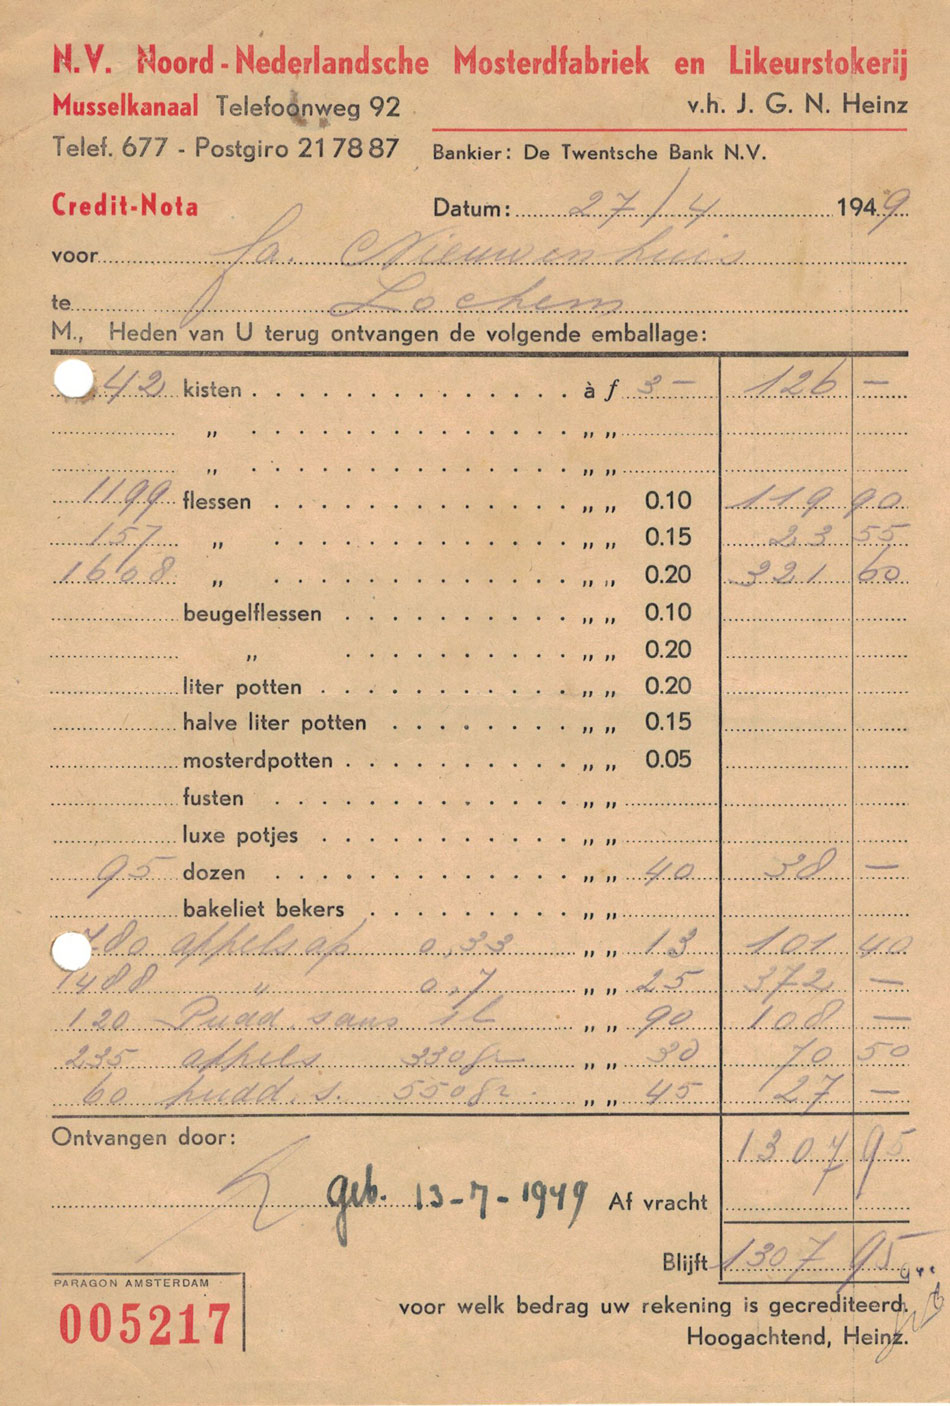 N.V. Noord-Nederlandsche Mosterdfabriek en Likeurstokerij
Musselkanaal Telefoonweg 92 v.h. J. G. N. Heinz
Telef. 677 - Postgiro 21 78 87 Bankier: De Twentsche Bank N.V.
Credit-Nota Datum: 27/4 1949
voor fa. Nieuwenhuis
te Lochem
M., Heden van U terug ontvangen de volgende emballage:
42 kisten à f 3 - 126 -
„ „ „
„ „ „
1199 flessen „ „ 0.10 119 90
157 „ „ „ 0.15 23 55
1608 „ „ „ 0.20 321 60
beugelflessen „ „ 0.10
„ „ „ 0.20
liter potten „ „ 0.20
halve liter potten „ „ 0.15
mosterdpotten „ „ 0.05
fusten „ „
luxe potjes „ „
95 dozen „ „ 40 38 -
bakeliet bekers „ „
780 appelsap 0,33 „ „ 13 101 40
1488 „ 0,7 „ „ 25 372 -
120 Pudd. saus „ „ 90 108 -
235 appels 330gr „ „ 30 70 50
60 pudd. s. 550gr. „ „ 45 27 -
Ontvangen door: 1307 95
geb. 13-7-1949 Af vracht
Blijft 1307 95
PARAGON AMSTERDAM
005217
voor welk bedrag uw rekening is gecrediteerd.
Hoogachtend, Heinz.